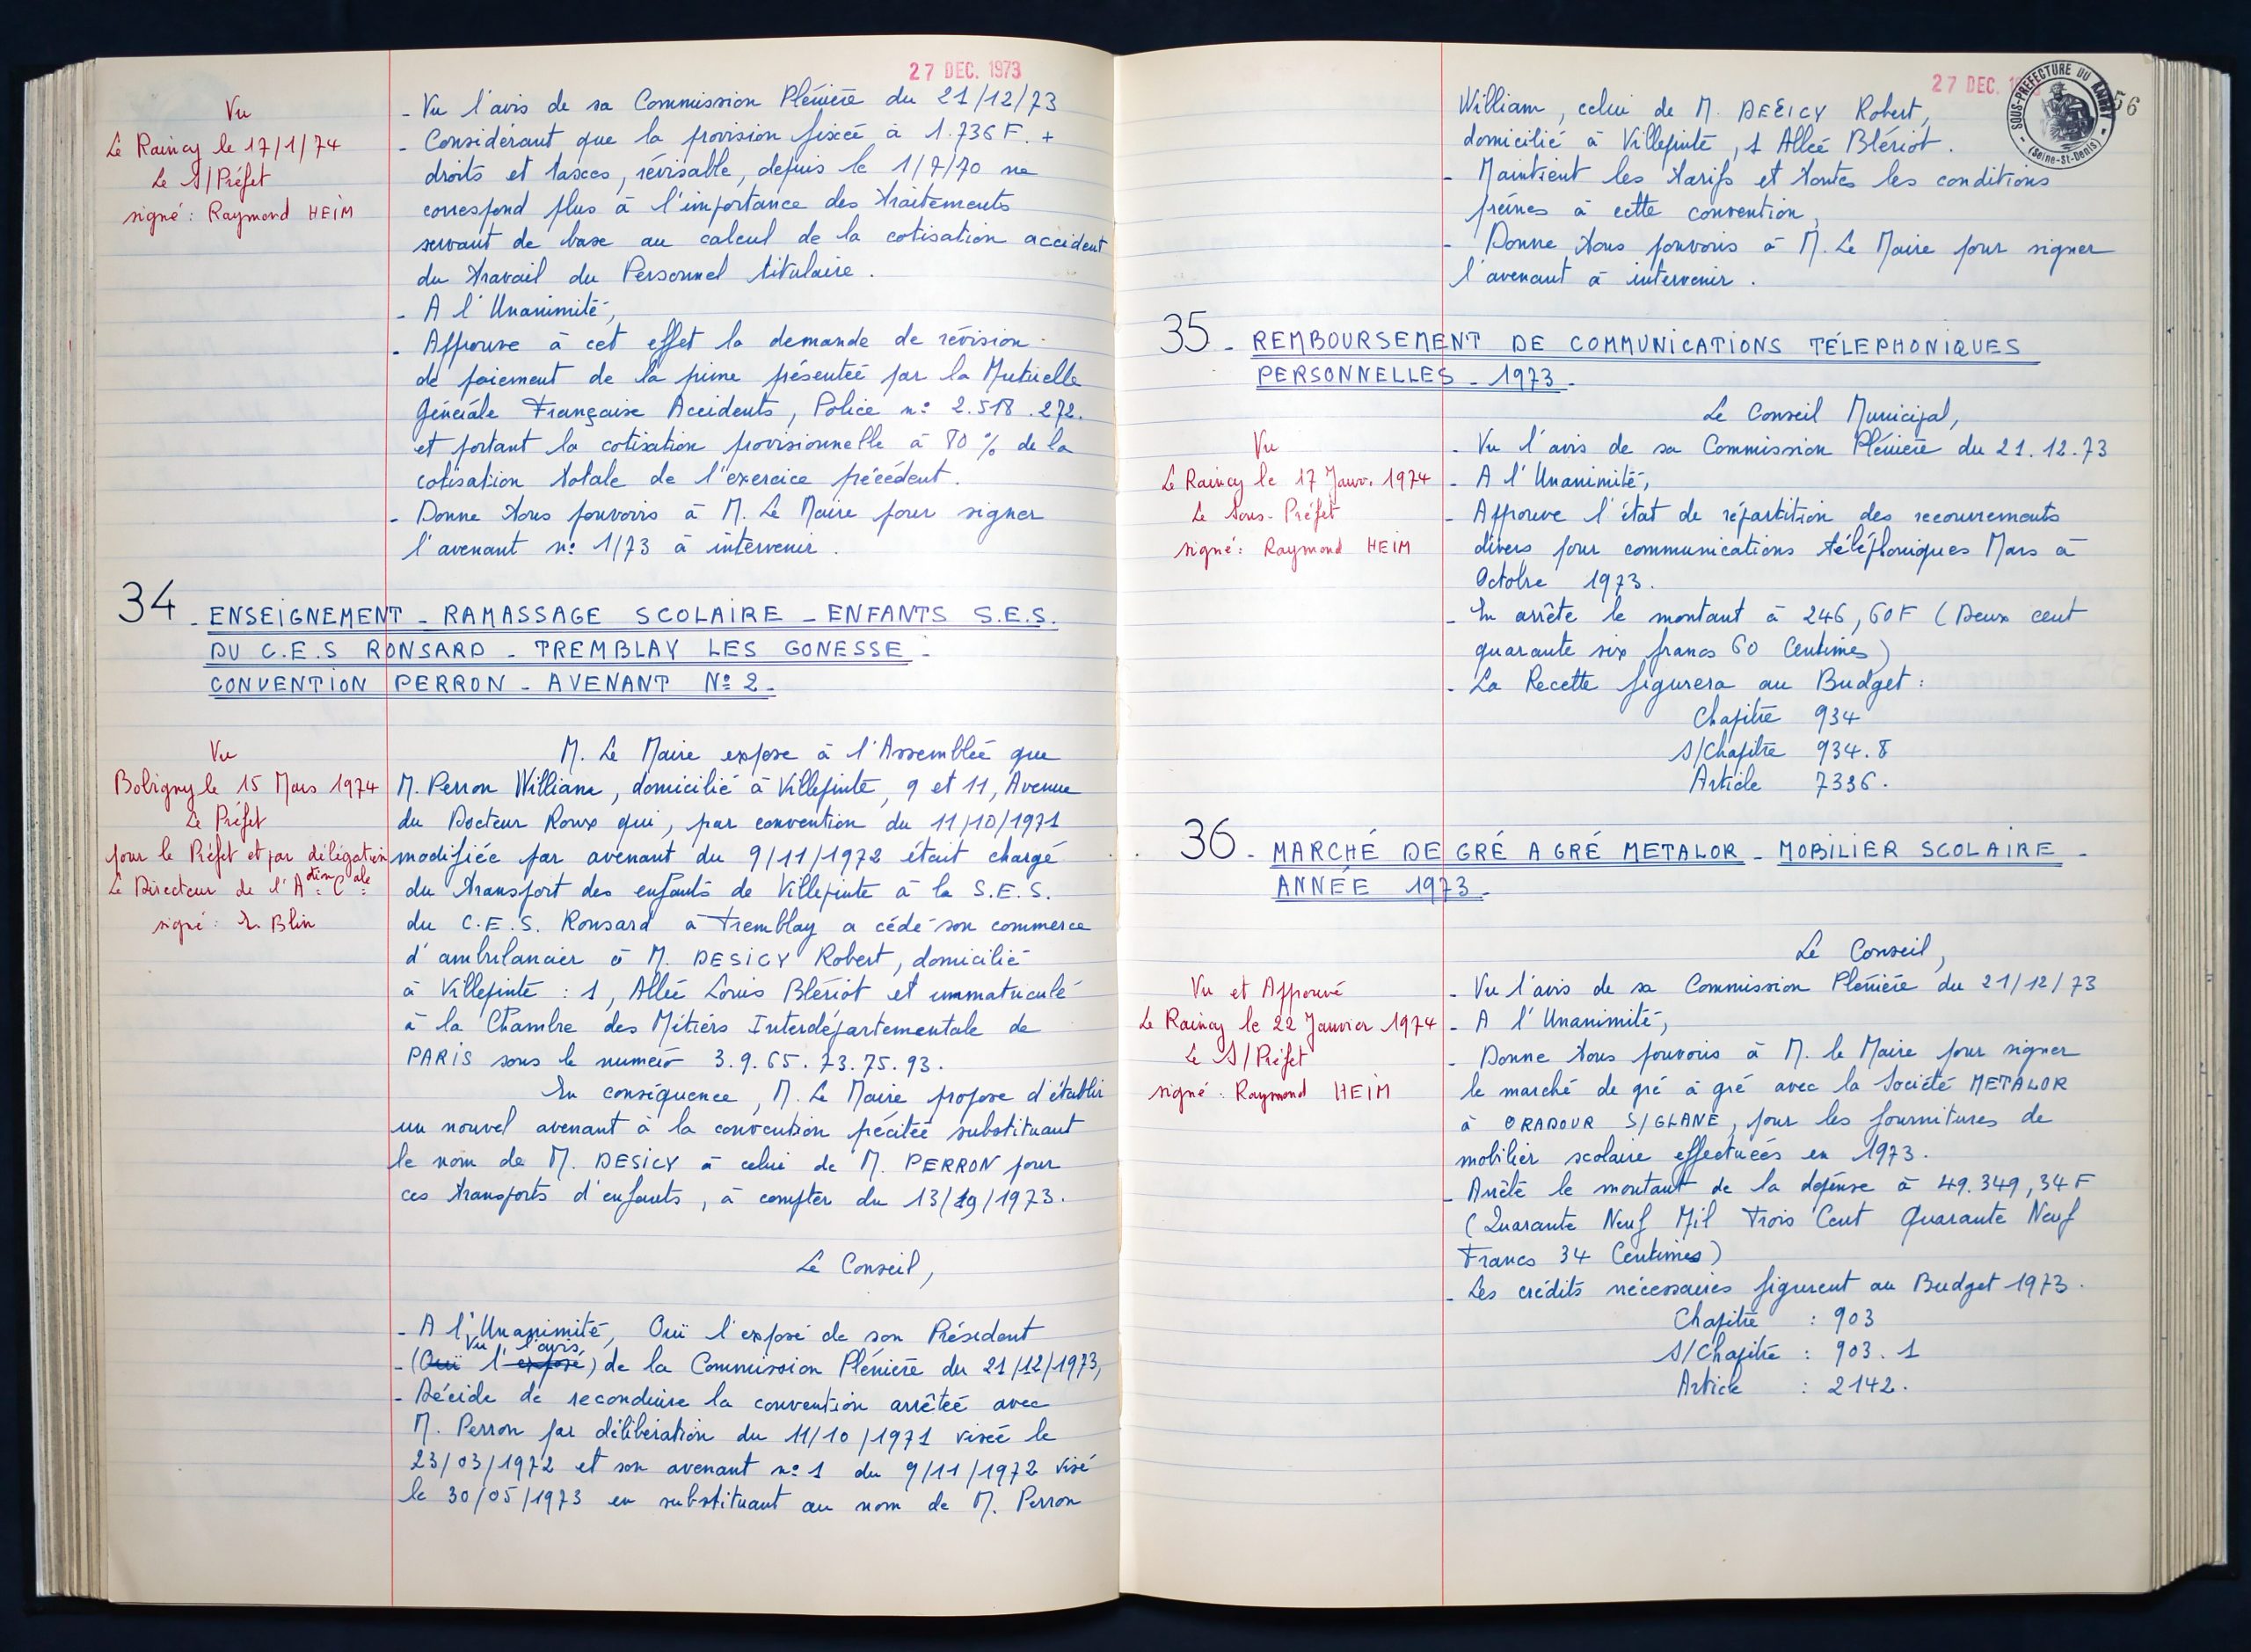 27 DEC. 1973
Vu
Le Raincy le 17/1/74
Le S/Préfet
signé : Raymond HEIM
- Vu l'avis de sa Commission Plénière du 21/12/73
- Considérant que la provision fixée à 1.736 F. +
droits et taxes, révisable, depuis le 1/7/70 ne
correspond plus à l'importance des traitements
servant de base au calcul de la cotisation accident
du travail du Personnel titulaire.
- A l'Unanimité,
- Approuve à cet effet la demande de révision
de paiement de la prime présentée par la Mutuelle
Générale Française Accidents, Police n° 2.518.272.
et portant la cotisation provisionnelle à 80 % de la
cotisation totale de l'exercice précédent.
- Donne tous pouvoirs à M. Le Maire pour signer
l'avenant n° 1/73 à intervenir.
34 - ENSEIGNEMENT - RAMASSAGE SCOLAIRE - ENFANTS S.E.S.
DU C.E.S RONSARD - TREMBLAY LES GONESSE -
CONVENTION PERRON - AVENANT N° 2 -
Vu
Bobigny le 15 Mars 1974
Le Préfet
pour le Préfet et par délégation
Le Directeur de l'Adtion Cale
signé : Blin
M. Le Maire expose à l'Assemblée que
M. Perron William, domicilié à Villepinte, 9 et 11, Avenue
du Docteur Roux qui, par convention du 11/10/1971
modifiée par avenant du 9/11/1972 était chargé
du transport des enfants de Villepinte à la S.E.S.
du C.E.S. Ronsard à Tremblay a cédé son commerce
d'ambulancier à M. DESICY Robert, domicilié
à Villepinte : 1, Allée Louis Blériot et immatriculé
à la Chambre des Métiers Interdépartementale de
PARIS sous le numéro 3.9.65.73.75.93.
En conséquence, M. Le Maire propose d'établir
un nouvel avenant à la convention précitée substituant
le nom de M. DESICY à celui de M. PERRON pour
ces transports d'enfants, à compter du 13/19/1973.
Le Conseil,
- A l'Unanimité, Ouï l'exposé de son Président
Vu l'avis
- (Ouï l'exposé) de la Commission Plénière du 21/12/1973,
- Décide de reconduire la convention arrêtée avec
M. Perron par délibération du 11/10/1971 visée le
23/03/1972 et son avenant n° 1 du 9/11/1972 visé
le 30/05/1973 en substituant au nom de M. Perron
27 DEC.
SOUS-PREFECTURE DU RAINCY
(Seine-St-Denis)
56
William, celui de M. DESICY Robert,
domicilié à Villepinte, 1 Allée Blériot.
- Maintient les tarifs et toutes les conditions
prévues à cette convention,
- Donne tous pouvoirs à M. Le Maire pour signer
l'avenant à intervenir.
35 - REMBOURSEMENT DE COMMUNICATIONS TÉLEPHONIQUES
PERSONNELLES - 1973 -
Vu
Le Raincy le 17 Janv. 1974
Le Sous-Préfet
signé : Raymond HEIM
Le Conseil Municipal,
- Vu l'avis de sa Commission Plénière du 21.12.73
- A l'Unanimité,
- Approuve l'état de répartition des recouvrements
divers pour communications téléphoniques Mars à
Octobre 1973.
- En arrête le montant à 246,60F (Deux cent
quarante six francs 60 Centimes)
- La Recette figurera au Budget :
Chapitre 934
S/Chapitre 934.8
Article 7336.
36 - MARCHÉ DE GRÉ A GRÉ METALOR - MOBILIER SCOLAIRE -
ANNÉE 1973 -
Vu et Approuvé
Le Raincy le 22 Janvier 1974
Le S/Préfet
signé : Raymond HEIM
Le Conseil,
- Vu l'avis de sa Commission Plénière du 21/12/73
- A l'Unanimité,
- Donne tous pouvoirs à M. le Maire pour signer
le marché de gré à gré avec la Société METALOR
à ORADOUR S/GLANE, pour les fournitures de
mobilier scolaire effectuées en 1973.
- Arrête le montant de la dépense à 49.349,34 F
(Quarante Neuf Mil Trois Cent Quarante Neuf
Francs 34 Centimes)
- Les crédits nécessaires figurent au Budget 1973.
Chapitre : 903
S/Chapitre : 903.1
Article : 2142.